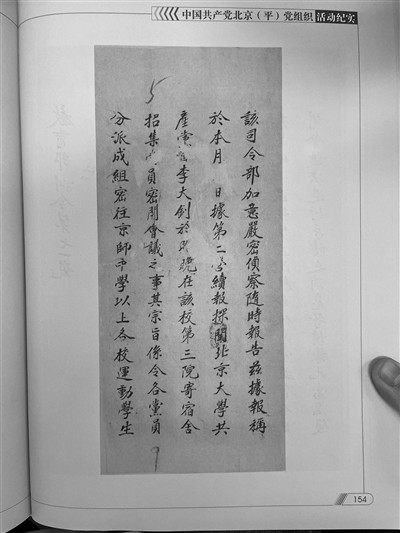 中国共产党北京（平）党组织 活动纪实
5
該司令部加意嚴密偵察隨時報告茲據報稱
於本月 日據第二 續報探聞北京大學共
產 李大釗於 晚在該校第三院寄宿舍
招集 員密開會議之事其宗旨係令各黨員
分派成組密往京師中學以上各校運動學生
9
154